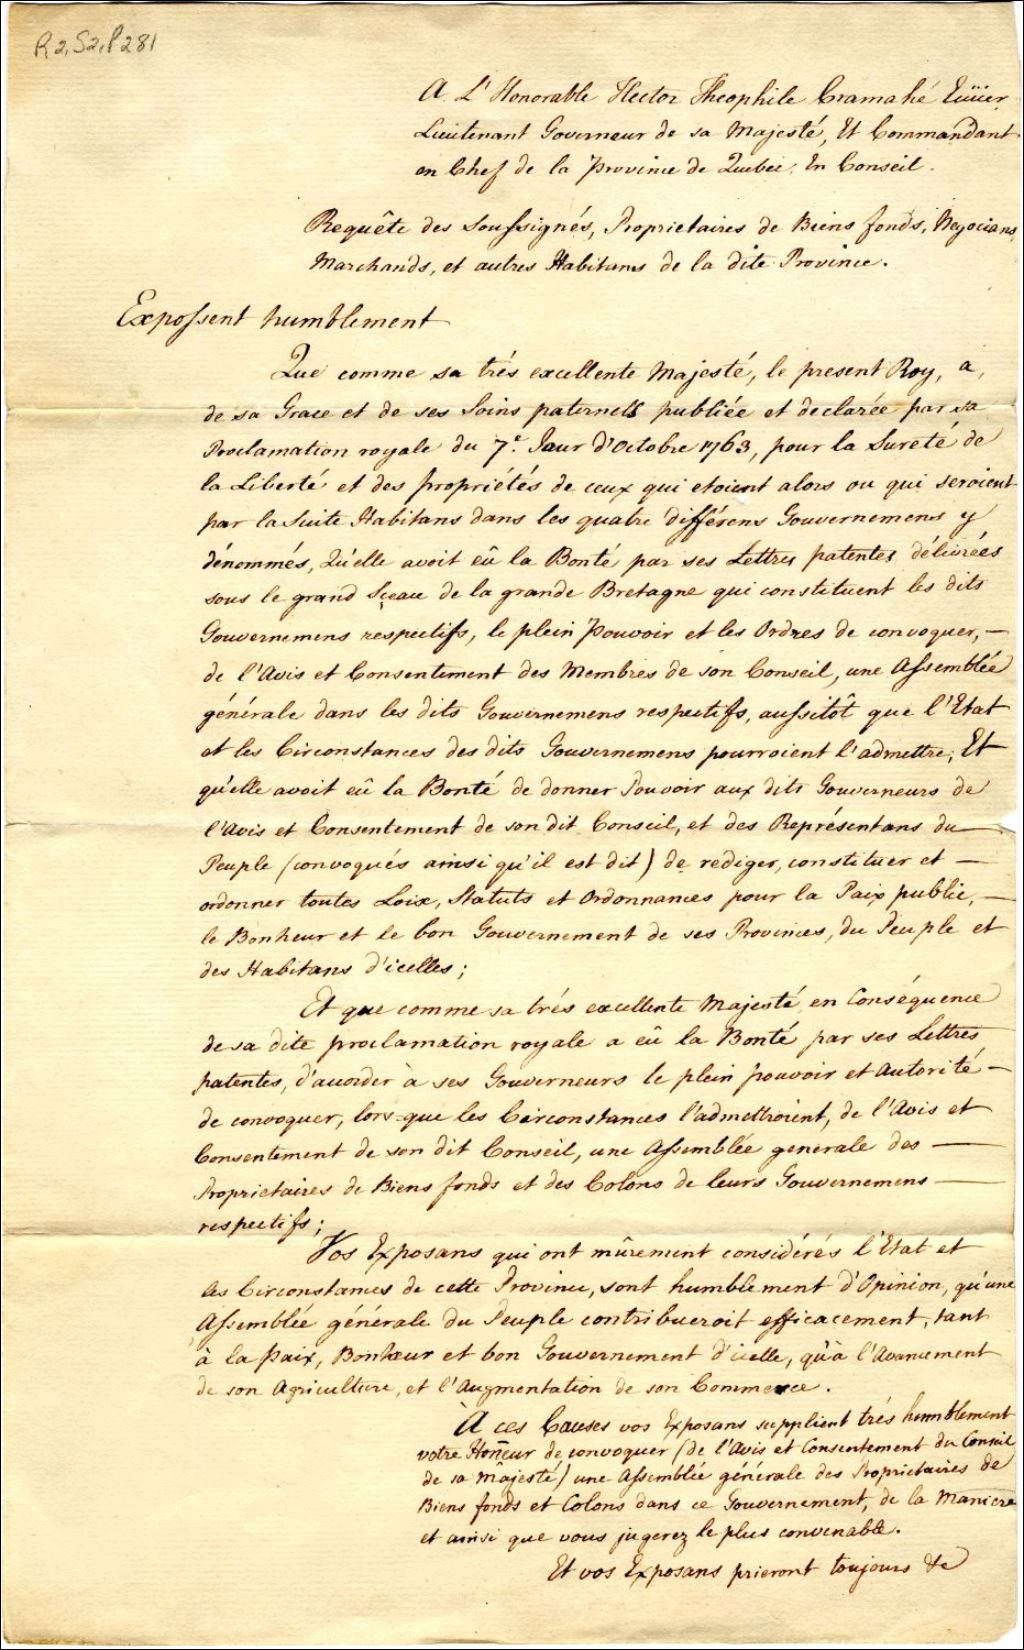 R2, S2, P281
A L'Honorable Hector Theophile Cramahé Ecuier
Lieutenant Governeur de sa Majesté, Et Commandant
en Chef de la province de Quebec, En Conseil.
Requête des Soussignés, Proprietaires de Biens fonds, Negocians,
Marchands, et autres Habitans de la dite Province.
Expossent humblement
Que comme sa trés excellente Majesté, le present Roy, a,
de sa Grace et de ses Soins paternels publiée et declarée par sa
Proclamation royale du 7e. Jour d'Octobre 1763, pour la Sureté de
la Liberté et des propriétés de ceux qui etoient alors ou qui seroient
par la Suite Habitans dans les quatre différens Gouvernemens y
dénommés, Qu'elle avoit eû la Bonté par ses Lettres patentes délivrées
sous le grand Sceau de la grande Bretagne qui constituent les dits
Gouvernemens respectifs, le plein Pouvoir et les Ordres de convoquer, —
de l'Avis et Consentement des Membres de son Conseil, une Assemblée
générale dans les dits Gouvernemens respectifs, aussitôt que l'Etat
et les Circonstances des dits Gouvernemens pourroient l'admettre; Et
qu'elle avoit eû la Bonté de donner Pouvoir aux dits Gouverneurs de
l'Avis et Consentement de son dit Conseil, et des Représentans du —
Peuple (convoqués ainsi qu'il est dit) de rediger, constituer et —
ordonner toutes Loix, Statuts et Ordonnances pour la Paix public, —
le Bonheur et le bon Gouvernement de ses Provinces, du Peuple et
des Habitans d'icelles;
Et que comme sa trés excellente Majesté en Conséquence
de sa dite proclamation royale a eû la Bonté par ses Lettres
patentes, d'accorder à ses Gouverneurs le plein pouvoir et Autorité —
de convoquer, lors-que les Circonstances l'admettroient, de l'Avis et
Consentement de son dit Conseil, une Assemblée generale des —
Proprietaires de Biens fonds et des Colons de leurs Gouvernemens —
respectifs;
Vos Exposans qui ont mûrement considérés l'Etat et
les Circonstances de cette Province, sont humblement d'Opinion, qu'une
Assemblée générale du Peuple contribueroit efficacement, tant
à la paix, Bonheur et bon Gouvernement d'icelle, qu'à l'Avancement
de son Agriculture, et l'Augmentation de son Commerce.
À ces Causes vos Exposans supplient trés humblement
votre Honneur de convoquer (de l'Avis et Consentement du Conseil
de sa Majesté) une Assemblée générale des Proprietaires de
Biens fonds et Colons dans ce Gouvernement, de la Maniere
et ainsi que vous jugerez le plus convenable.
Et vos Exposans prieront toujours &c